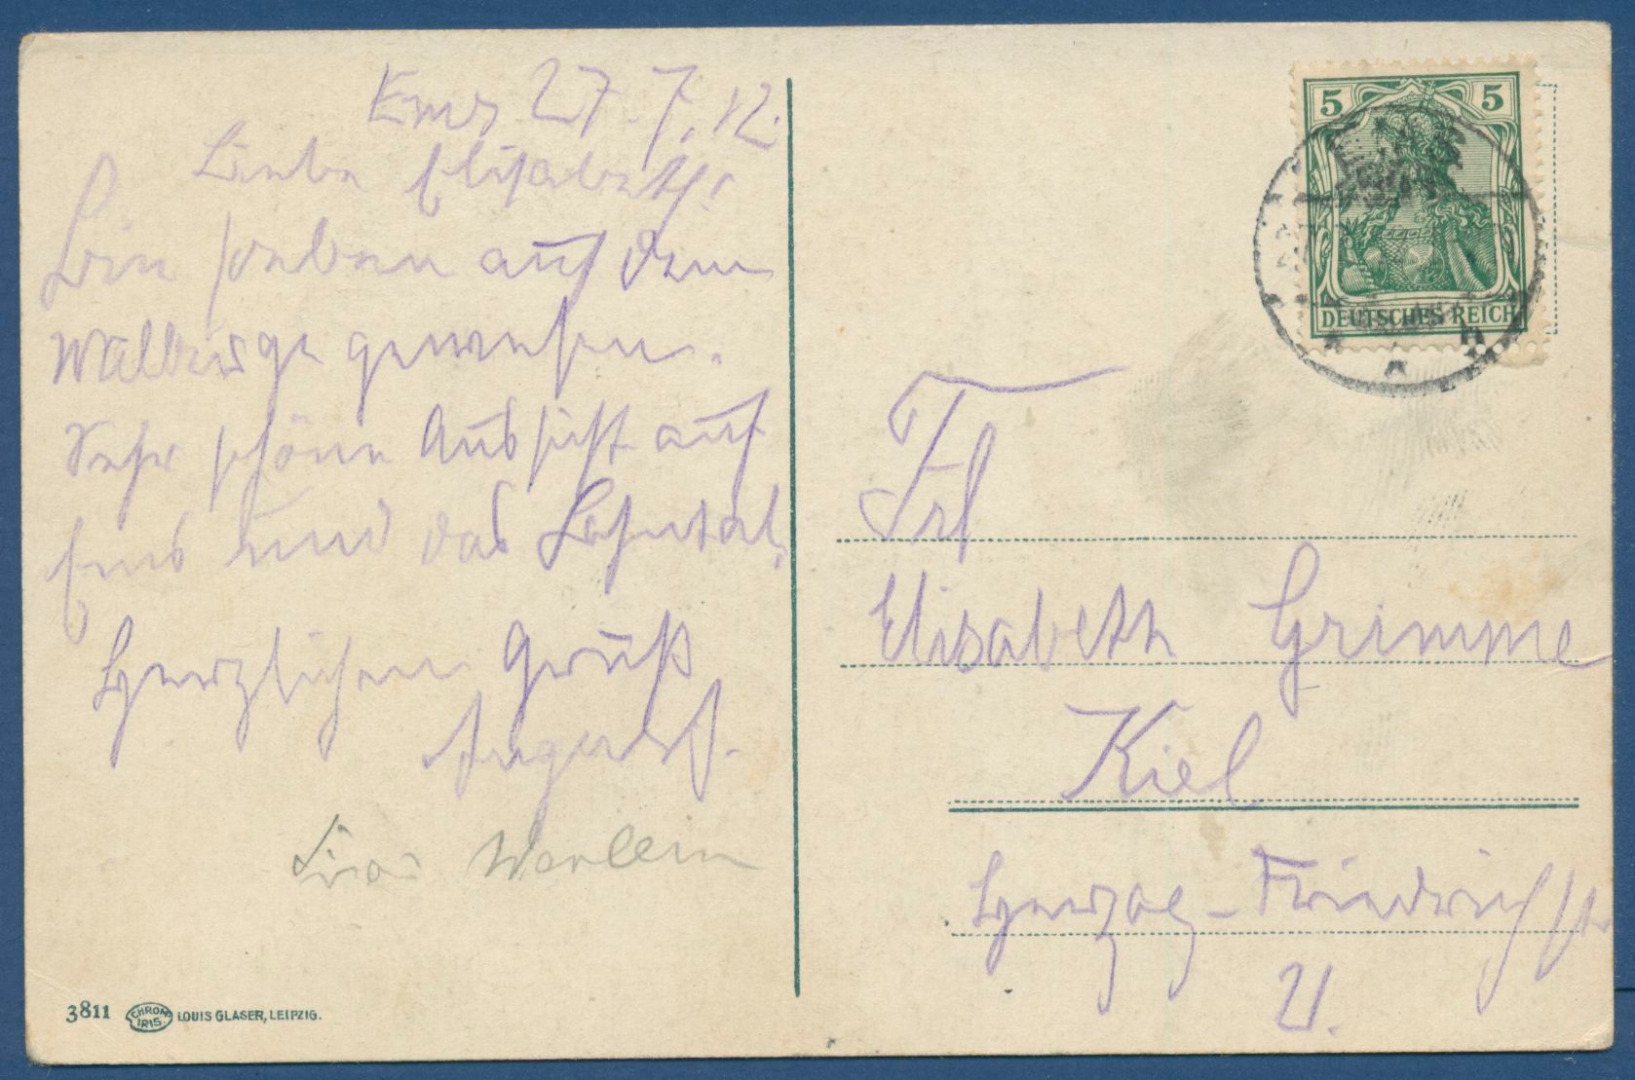 Ems 27.7.12.
Liebe Elisabeth!
Bin soeben auf dem
Malberge gewesen.
Sehr schöne Aussicht auf
Ems und das Lahntal.
Herzlichen Gruß
August.
3811 CHROM IRIS. LOUIS GLASER, LEIPZIG.
5 5
DEUTSCHES REICH
Frl
Elisabeth Grimme
Kiel
Herzog-Friedrichstr